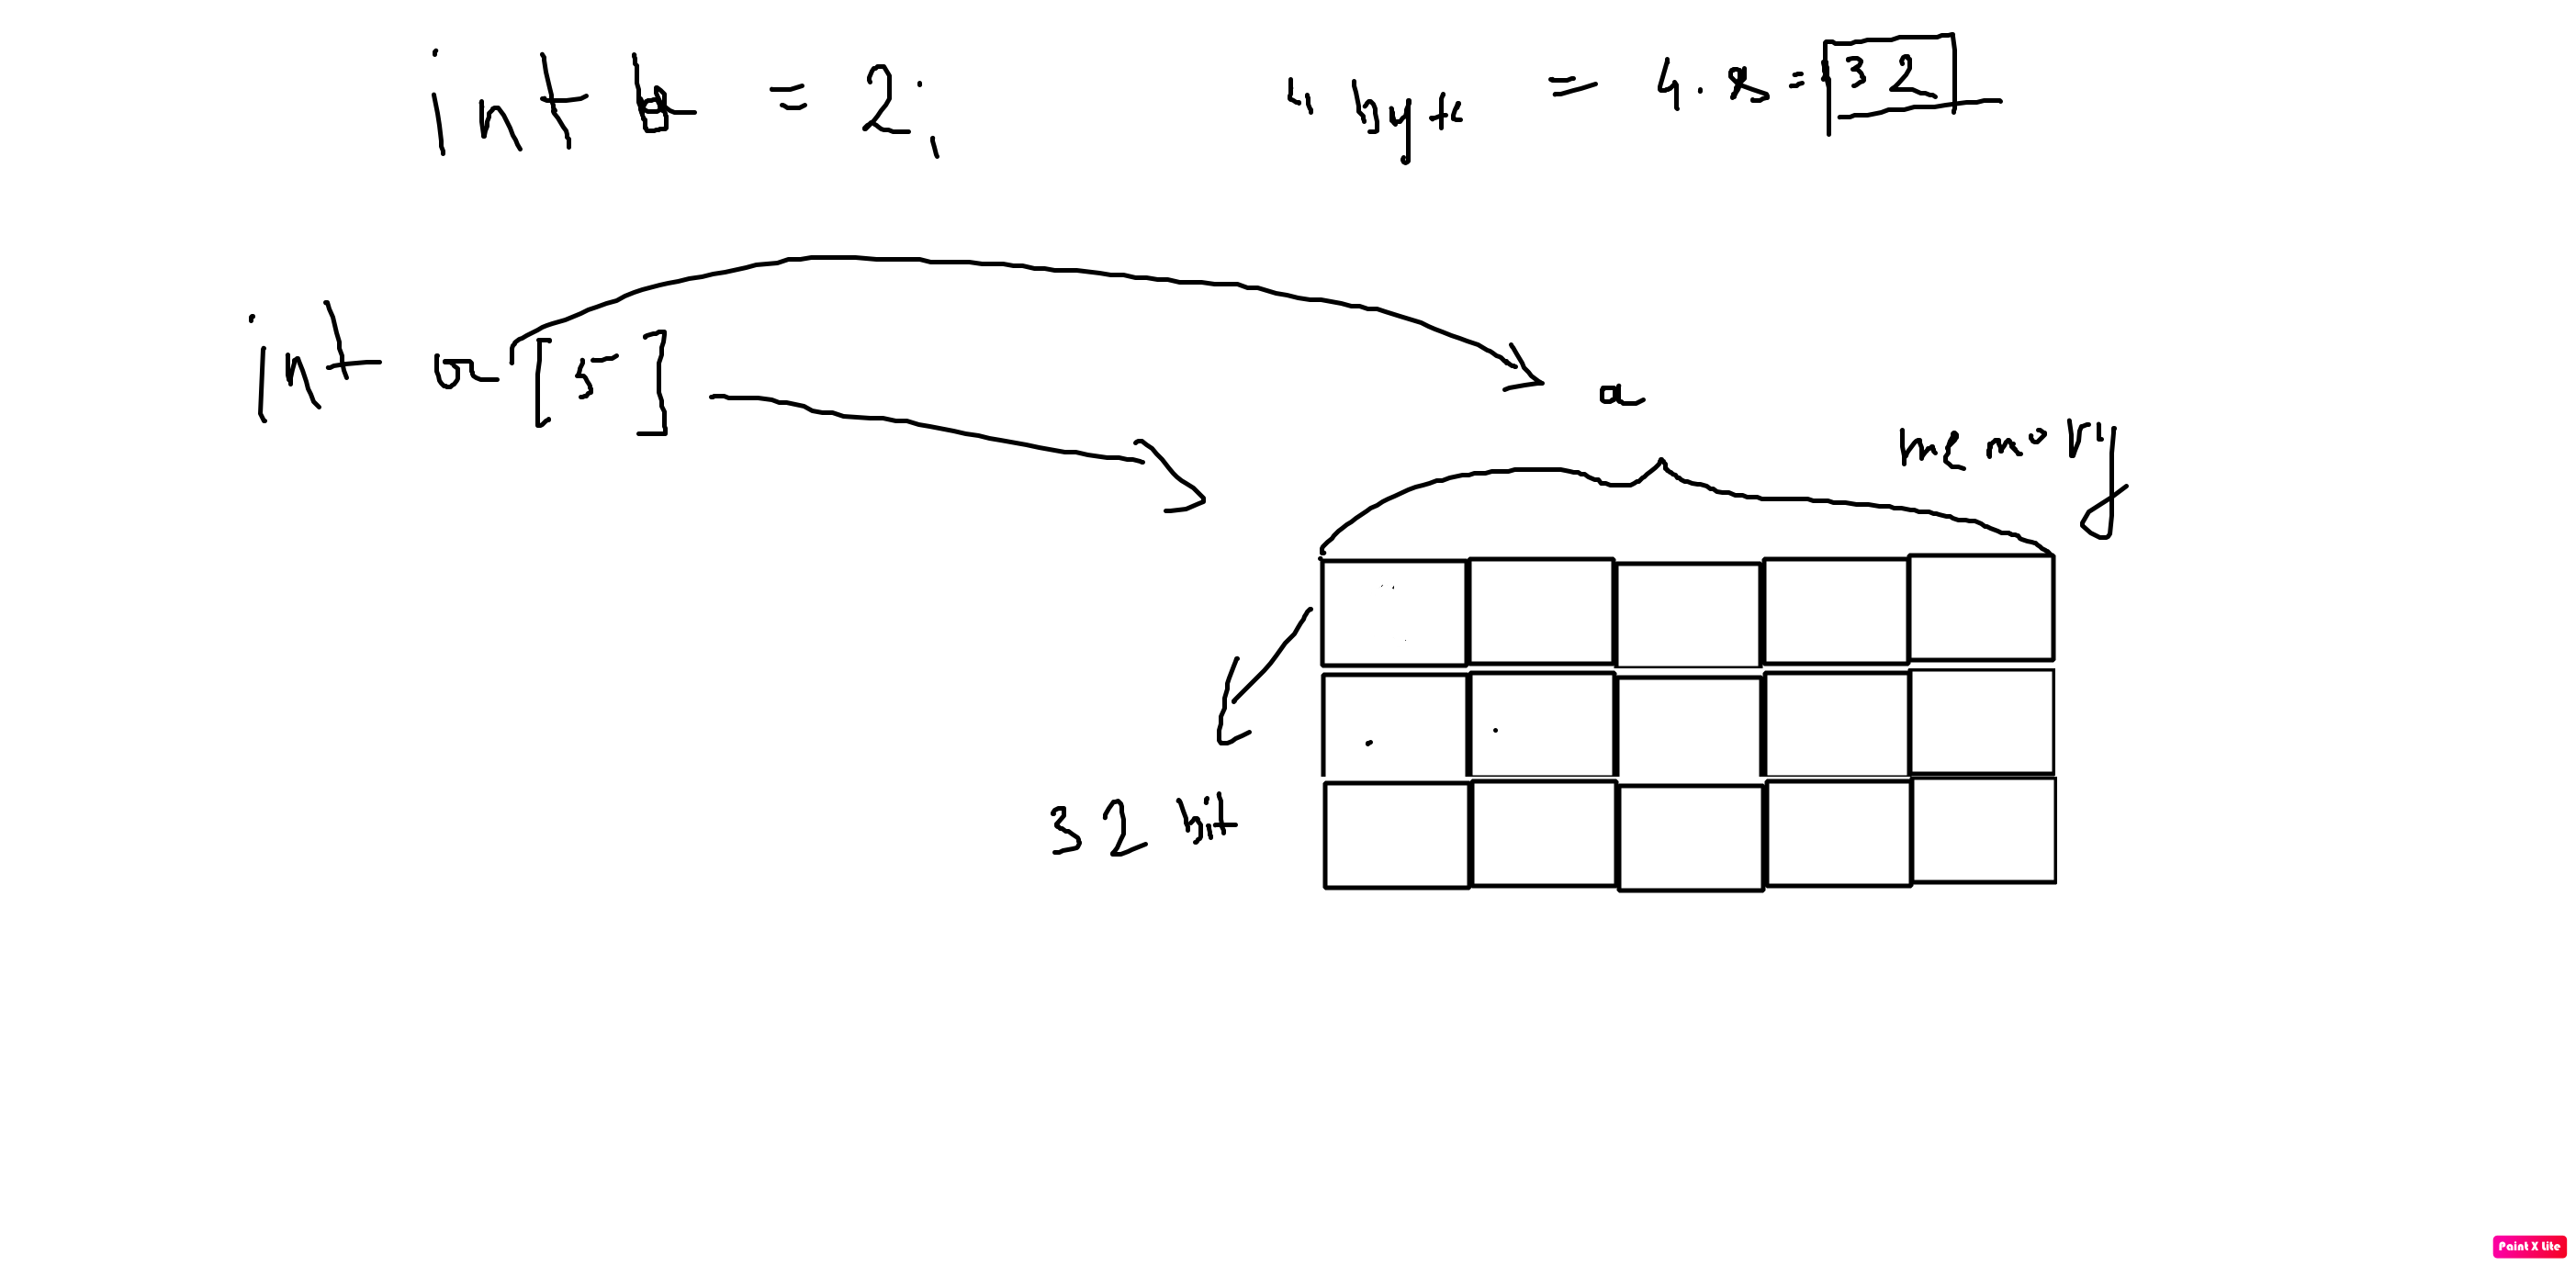 int b = 2;
4 byte = 4.8 = 32
int a[5]
a
memory
32 bit
Paint X Lite